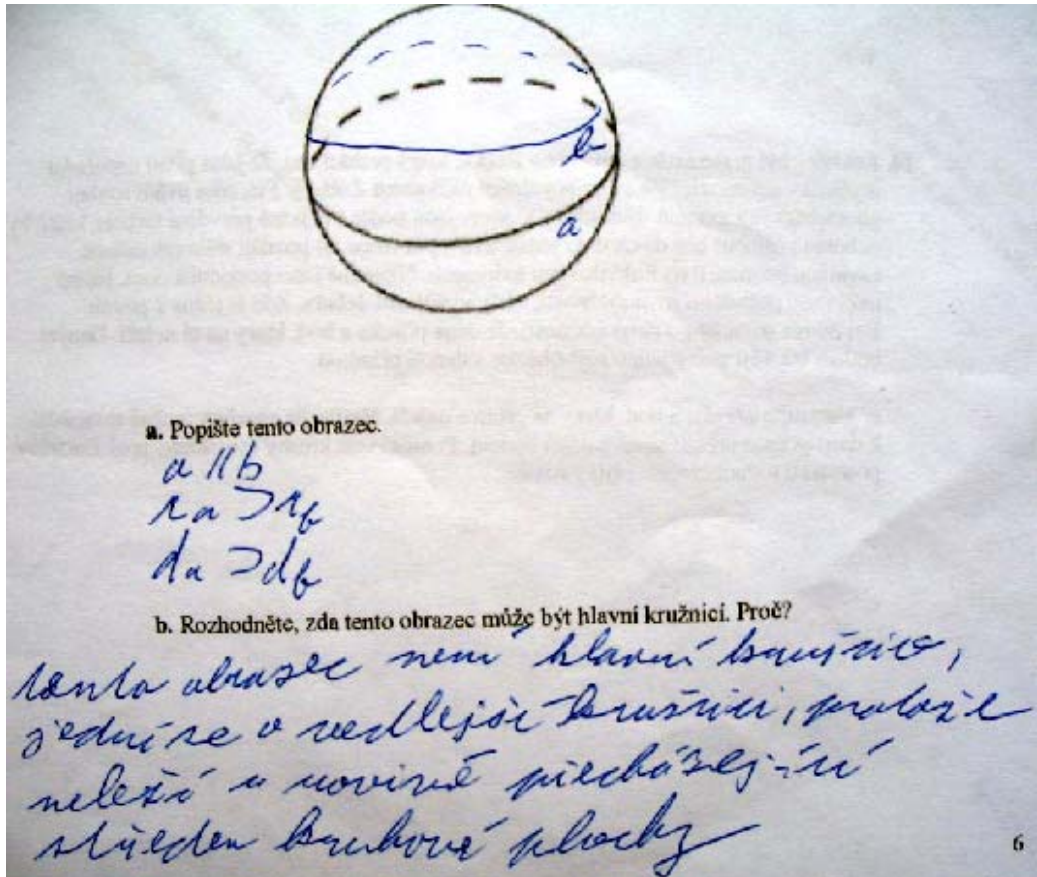 b
a
a. Popište tento obrazec.
a || b
r a > r b
d a > d b
b. Rozhodněte, zda tento obrazec může být hlavní kružnicí. Proč?
tento obrazec není hlavní kružnice,
jední se o vedlejší kružnici, protože
neleží v rovině procházející
středem kruhové plochy
6